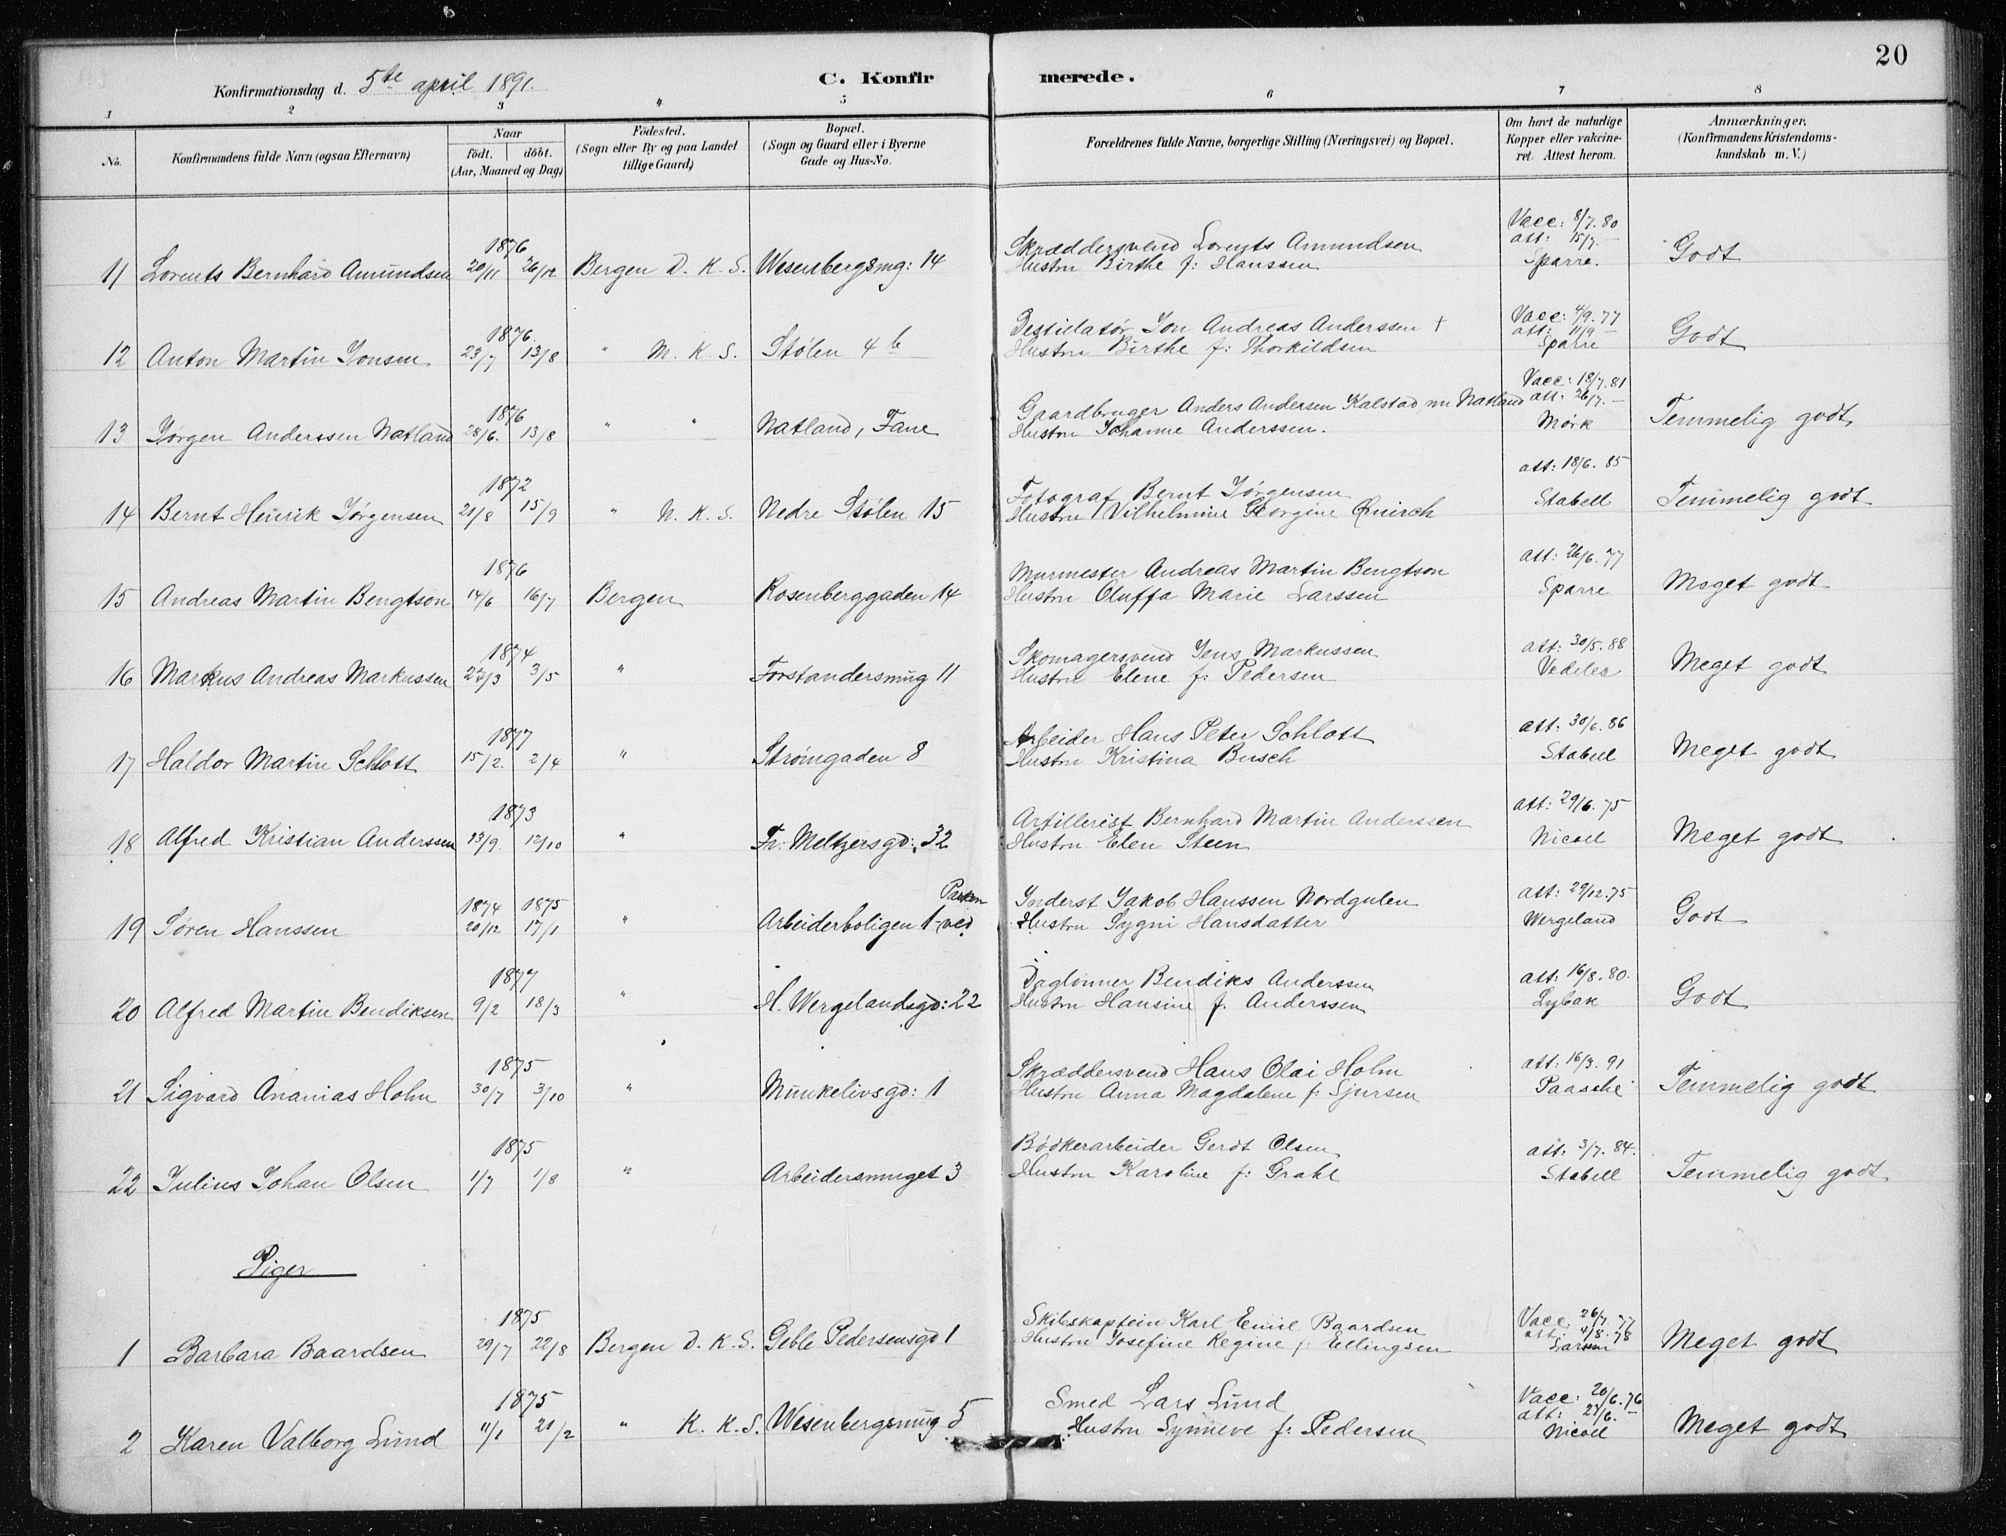 20
Konfirmationsdag d. 5te april 1891.
C. Konfirmerede.
1 2 3 4 5 6 7 8
No. Konfirmandens fulde Navn (ogsaa Efternavn) Naar födt. döbt. (Aar, Maaned og Dag) Födested. (Sogn eller By og paa Landet tillige Gaard) Bopæl. (Sogn og Gaard eller i Byerne Gade og Hus-No. Forældrenes fulde Navne, borgerlige Stilling (Næringsvei) og Bopæl. Om havt de naturlige Kopper eller vakcineret. Attest herom. Anmærkninger. (Konfirmandens Kristendomskundskab m. V.)
1876 Skræddersvend Lorents Amundsen Vacc: 8/7. 80 att: 15/7. —
11 Lorents Bernhard Amundsen 20/11 26/12 Bergen D. K. S. Wesenbergsmg: 14 Hustru Birthe f: Hanssen Sparre. Godt
1876. Destilatør Jon Andreas Anderssen + Vacc: 4/9. 77 att: 11/9 —
12 Anton Martin Jonsen 23/7 13/8 " M. K. S. Stølen 4 b Hustru Birthe f: Thorkildsen Sparre Godt
1876 Gaardbruger Anders Andersen Kalstad, nu Natland Vacc: 18/7. 81 att: 26/7. —
13 Jørgen Anderssen Natland 28/6. 13/8 " " Natland, Fane Hustru Johanne Anderssen. Mørk Temmelig godt
1872 Fotograf Bernt Jørgensen att: 18/6. 85
14 Bernt Henrik Jørgensen 21/8 15/9 " N. K. S. Nedre Stølen 15 Hustru Vilhelmine Georgine Quirch Stabell Temmelig godt
1876 Murmester Andreas Martin Bengtson att: 26/6. 77
15 Andreas Martin Bengtson 14/6 16/7 Bergen Rosenberggaden 14 Hustru Oluffa Marie Larssen Sparre Meget godt
1874 Skomagersvend Jens Markussen att: 30/5. 88
16 Markus Andreas Markussen 23/3 3/5 " Forstandersmug 11 Hustru Elene f: Pedersen Vedeler Meget godt
1877 Arbeider Hans Peter Schlott att: 30/6. 86
17 Haldor Martin Schlott 15/2. 2/4 " Strømgaden 8 Hustru Kristina Busch Stabell Meget godt
1873 Artillerist Bernhard Martin Anderssen att: 29/6. 75
18 Alfred Kristian Anderssen 13/9. 12/10 " Fr: Meltzersgd: 32 Hustru Elen Steen Nicoll Meget godt
1874 1875 Parken Inderst Jakob Hanssen Nordgulen att: 29/12. 75
19 Søren Hanssen 20/12 17/1 " Arbeiderboligen 1 ved Hustru Sygni Hansdatter Wergeland Godt
1877 Daglønner Bendiks Anderssen att: 16/8. 80.
20 Alfred Martin Bendiksen 9/2 18/3 " H. Wergelandsgd: 22 Hustru Hansine f. Anderssen Lybak Godt
1875 Skræddersvend Hans Olai Holm att: 16/3. 91
21 Sigvard Ananias Holm 30/7 3/10 " Munkelivsgd: 1 Hustru Anna Magdalene f: Sjursen Paasche Temmelig godt
1875 Bødkerarbeider Gerdt Olsen att: 3/7. 84.
22 Julius Johan Olsen 1/7 1/8 " Arbeidersmuget 3 Hustru Karoline f: Grahl Stabell Temmelig godt
Piger
1875 Skibskaptein Karl Emil Baardsen Vacc: 26/7. 77 att: 4/8. 78
1 Barbara Baardsen 29/7 22/8 Bergen D. K. S. Geble Pedersensgd 1 Hustru Josefine Regine f: Ellingsen Larsen Meget godt
1875 Smed Lars Lund Vacc: 20/6. 76 att: 27/6. —
2 Karen Valborg Lund 11/1 21/2 " K. K. S. Wesenbergsmug 5 Hustru Synneve f: Pedersen Nicoll Meget godt